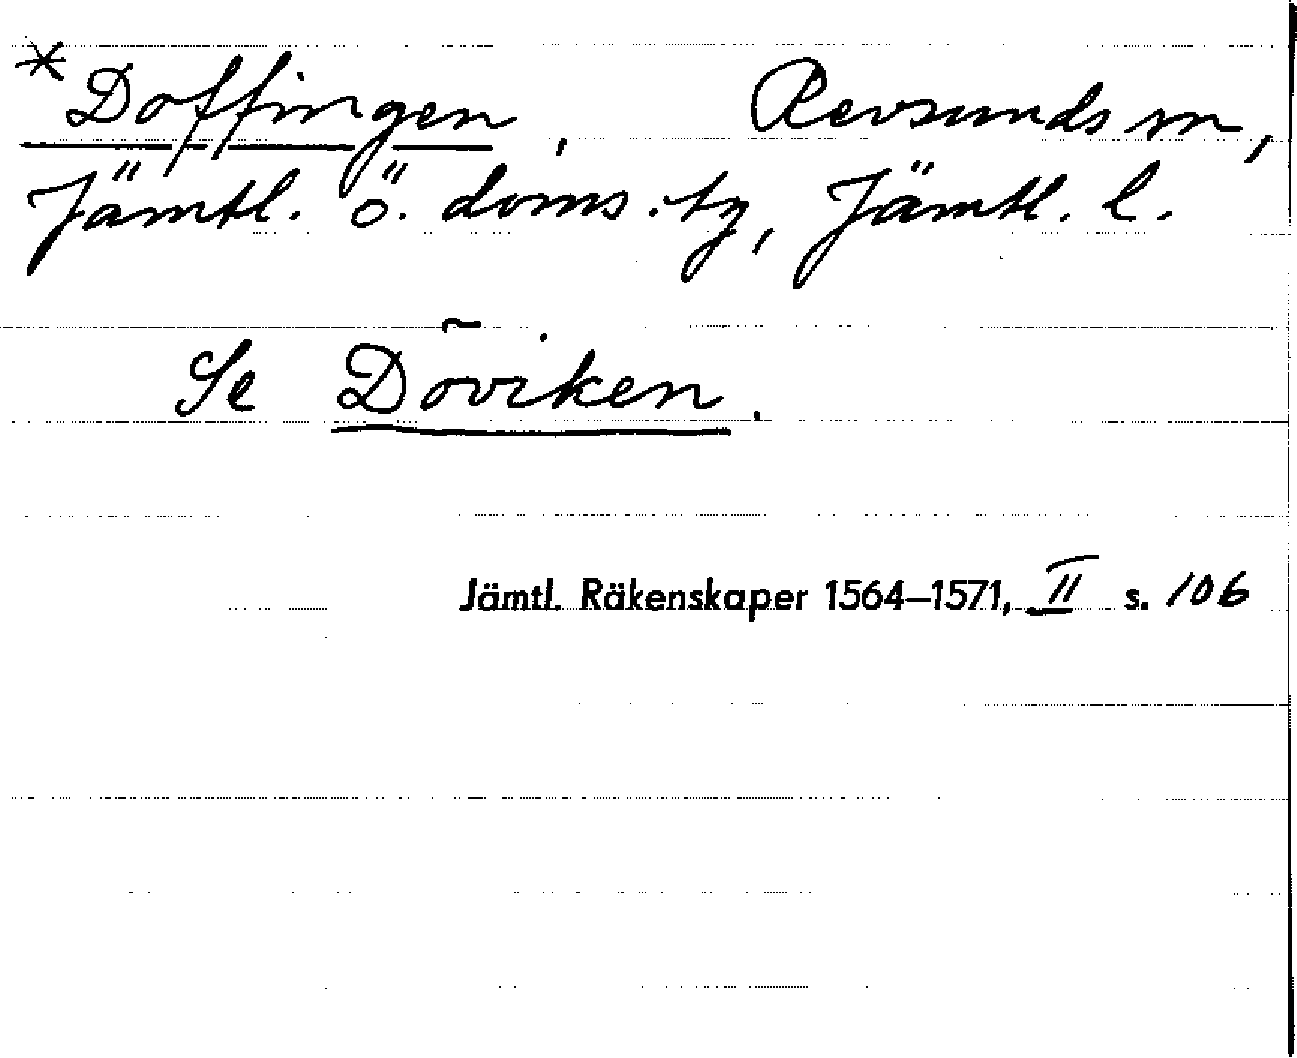 *Doffingen, Revsunds sn,
Jämtl. ö. doms.tg, Jämtl. l.
Se Döviken.
Jämtl. Räkenskaper 1564–1571, II s. 106